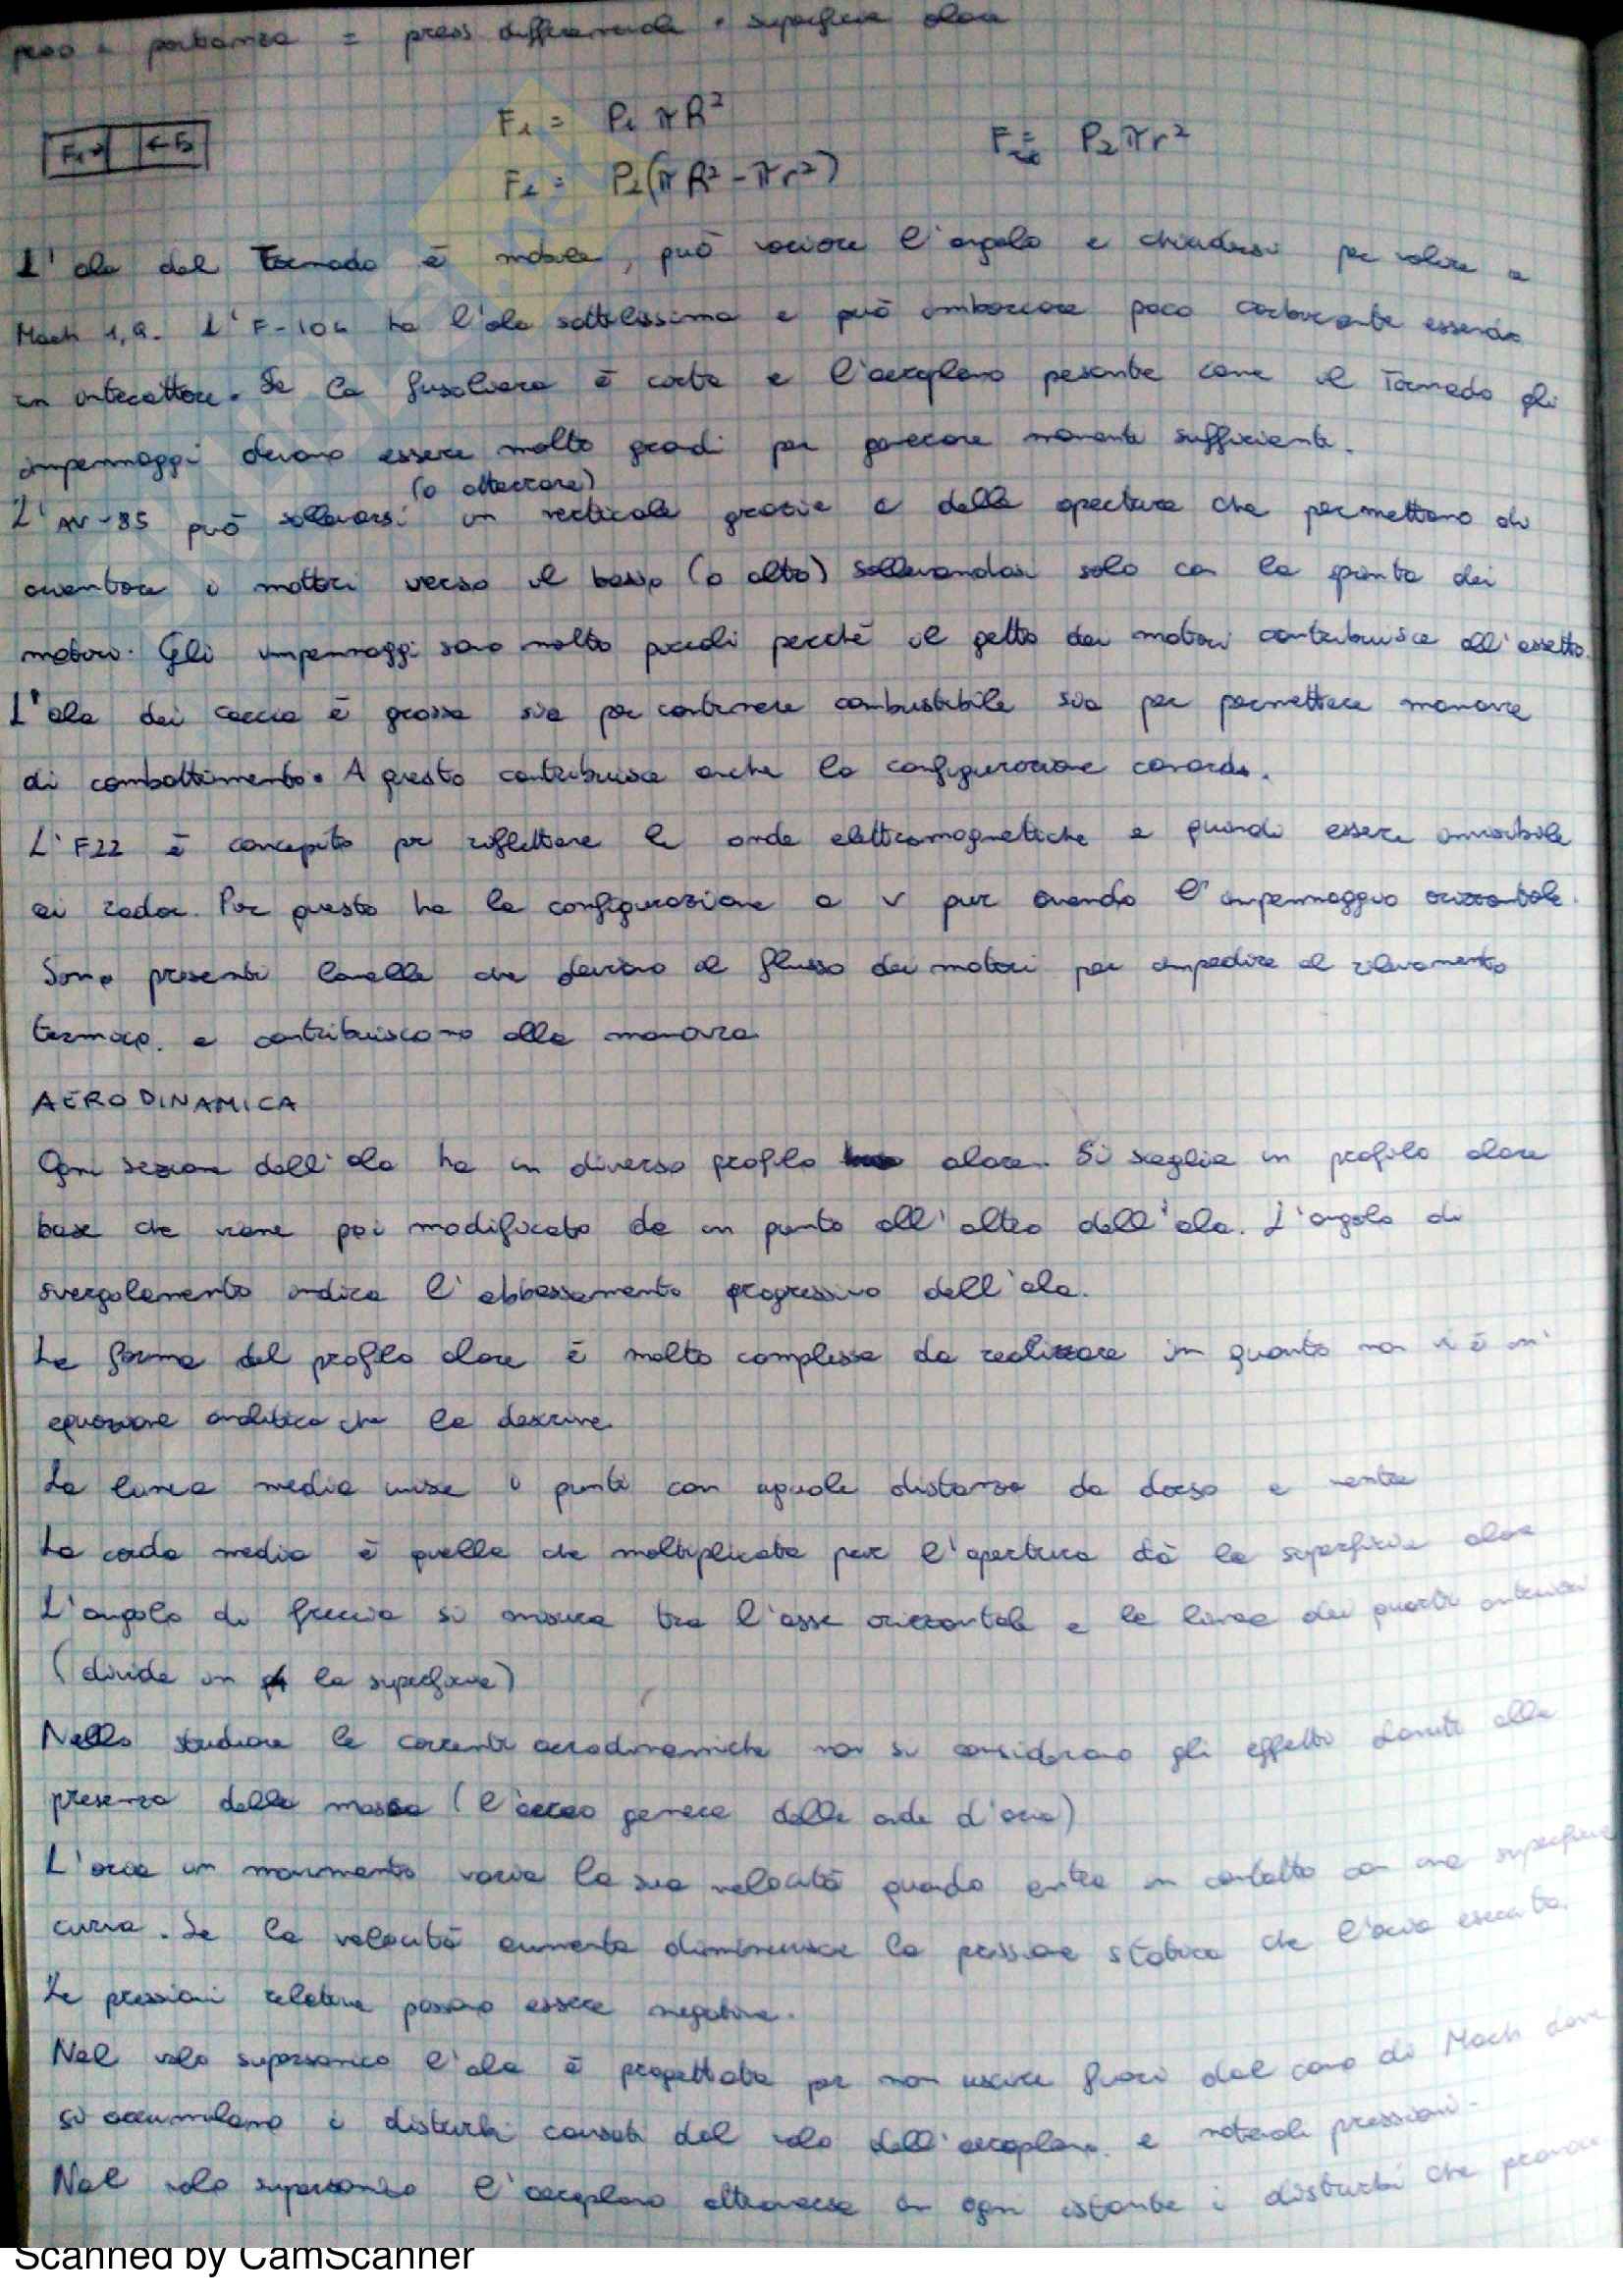 peso = portanza = press differenziale • superficie alare
F₁ = P₁ πR²
F₁→ ←F₂
F = P₂πr²
F₂ = P₂(πR² - πr²)
L'ala del Tornado è mobile, può variare l'angolo e chiudersi per volare a
Mach 1,9. L'F-104 ha l'ala sottilissima e può imbarcare poco carburante essendo
un intercettore. Se la fusoliera è corta e l'aeroplano pesante come il Tornado gli
impennaggi devono essere molto grandi per generare momenti sufficienti.
(o atterrare)
L'AV-85 può sollevarsi in verticale grazie a delle aperture che permettono di
orientare i motori verso il basso (o alto) sollevandosi solo con la spinta dei
motori. Gli impennaggi sono molto piccoli perché il getto dei motori contribuisce all'assetto.
L'ala dei caccia è grossa sia per contenere combustibile sia per permettere manovre
di combattimento. A questo contribuisce anche la configurazione canards.
L'F22 è concepito per riflettere le onde elettromagnetiche e quindi essere invisibile
ai radar. Per questo ha la configurazione a V pur avendo l'impennaggio orizzontale.
Sono presenti lamelle che deviano il flusso dei motori per impedire il rilevamento
termico. e contribuiscono alla manovra
AERODINAMICA
Ogni sezione dell'ala ha un diverso profilo alare. Si sceglie un profilo alare
base che viene poi modificato da un punto all'altro dell'ala. L'angolo di
svergolamento indica l'abbassamento progressivo dell'ala.
La forma del profilo alare è molto complessa da realizzare in quanto non vi è un'
equazione analitica che la descrive.
La linea media unisce i punti con uguale distanza da dorso e ventre
La corda media è quella che moltiplicata per l'apertura dà la superficie alare
L'angolo di freccia si misura tra l'asse orizzontale e la linea dei quarti anteriori
(divide in 4 la superficie)
Nello studiare le correnti aerodinamiche non si considerano gli effetti dovuti alla
presenza della massa (l'aereo genera delle onde d'aria)
L'aria in movimento varia la sua velocità quando entra in contatto con una superficie
curva. Se la velocità aumenta diminuisce la pressione statica che l'aria esercita.
Le pressioni relative possono essere negative.
Nel volo supersonico l'ala è progettata per non uscire fuori dal cono di Mach dove
si accumulano i disturbi causati dal volo dell'aeroplano. e notevoli pressioni.
Nel volo supersonico l'aeroplano attraversa in ogni istante i disturbi che
Scanned by CamScanner